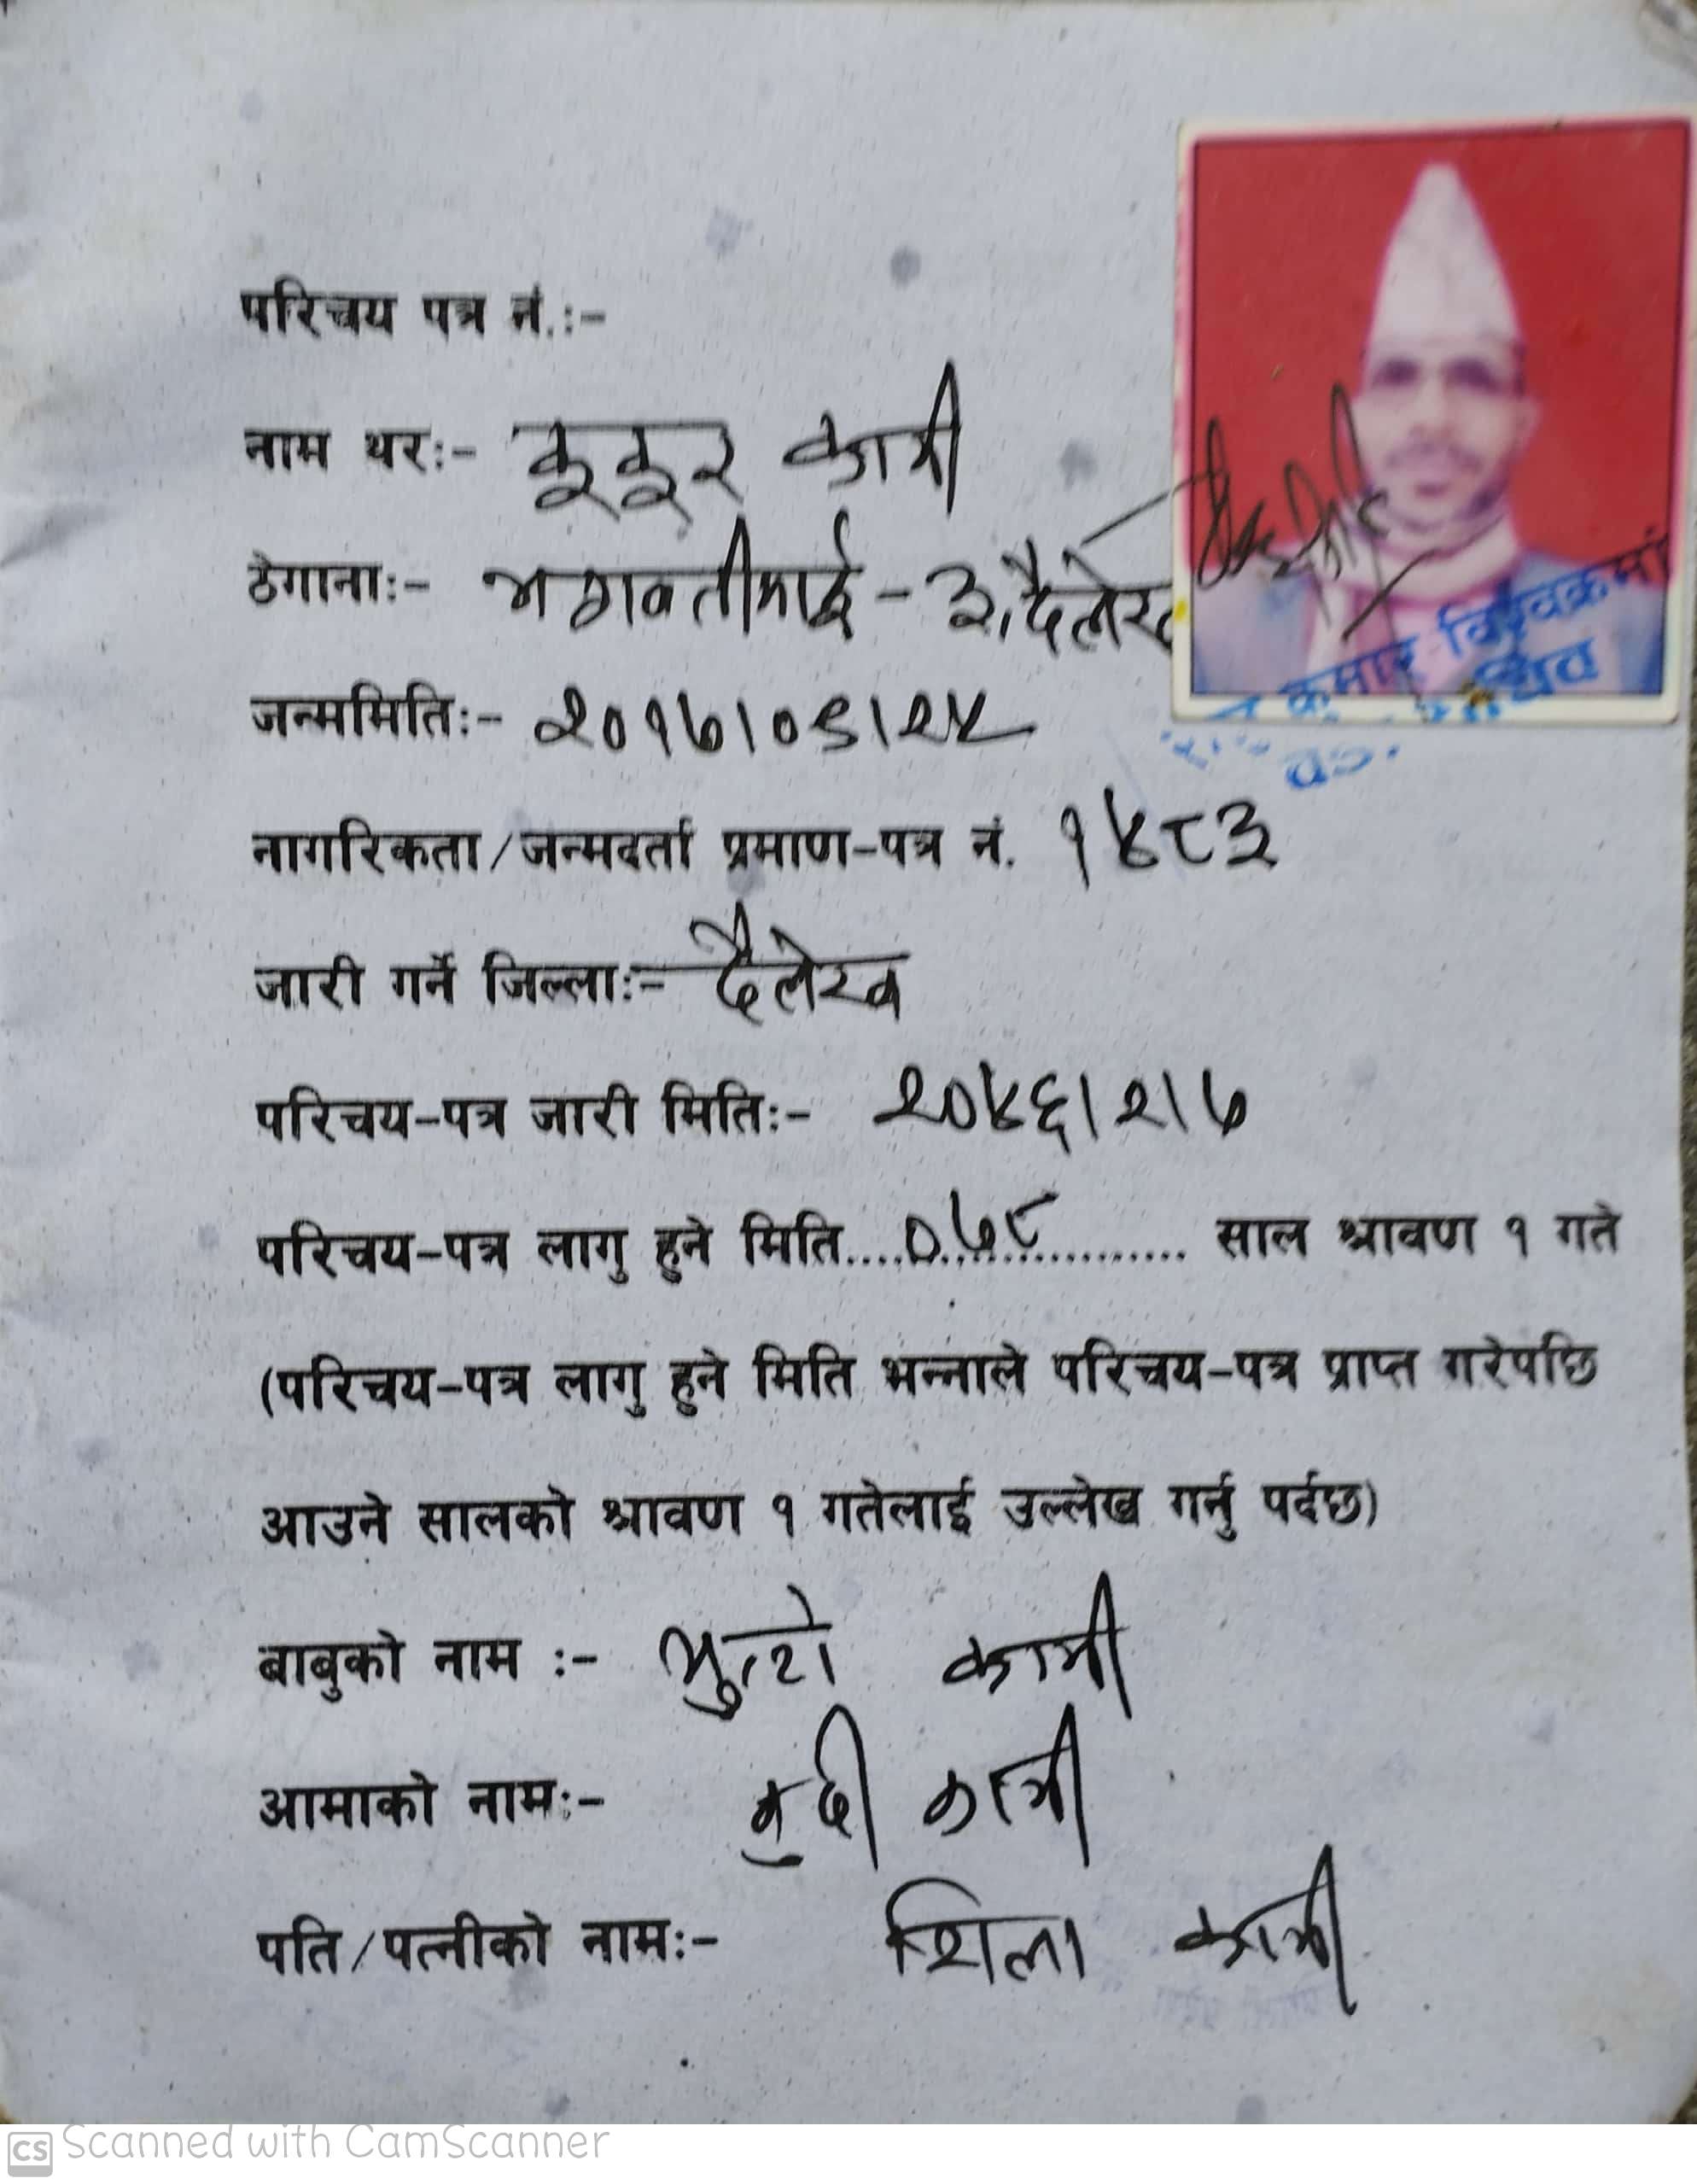 परिचय पत्र नं.:-
नाम थरः- कुकुर कामी
ठेगानाः- भगवतीमाई - ३, दैलेख
जन्ममितिः- २०१७।०९।२५
कुमार विश्वकर्मा
नागरिकता/जन्मदर्ता प्रमाण-पत्र नं. १४८३
जारी गर्ने जिल्लाः- दैलेख
परिचय-पत्र जारी मितिः- २०४६।२।७
परिचय-पत्र लागु हुने मिति....०७८.................. साल श्रावण १ गते
(परिचय-पत्र लागु हुने मिति भन्नाले परिचय-पत्र प्राप्त गरेपछि
आउने सालको श्रावण १ गतेलाई उल्लेख गर्नु पर्दछ)
बाबुको नाम :- कामी
आमाको नामः- कामी
पति/पत्नीको नामः- शिला कामी
CS Scanned with CamScanner